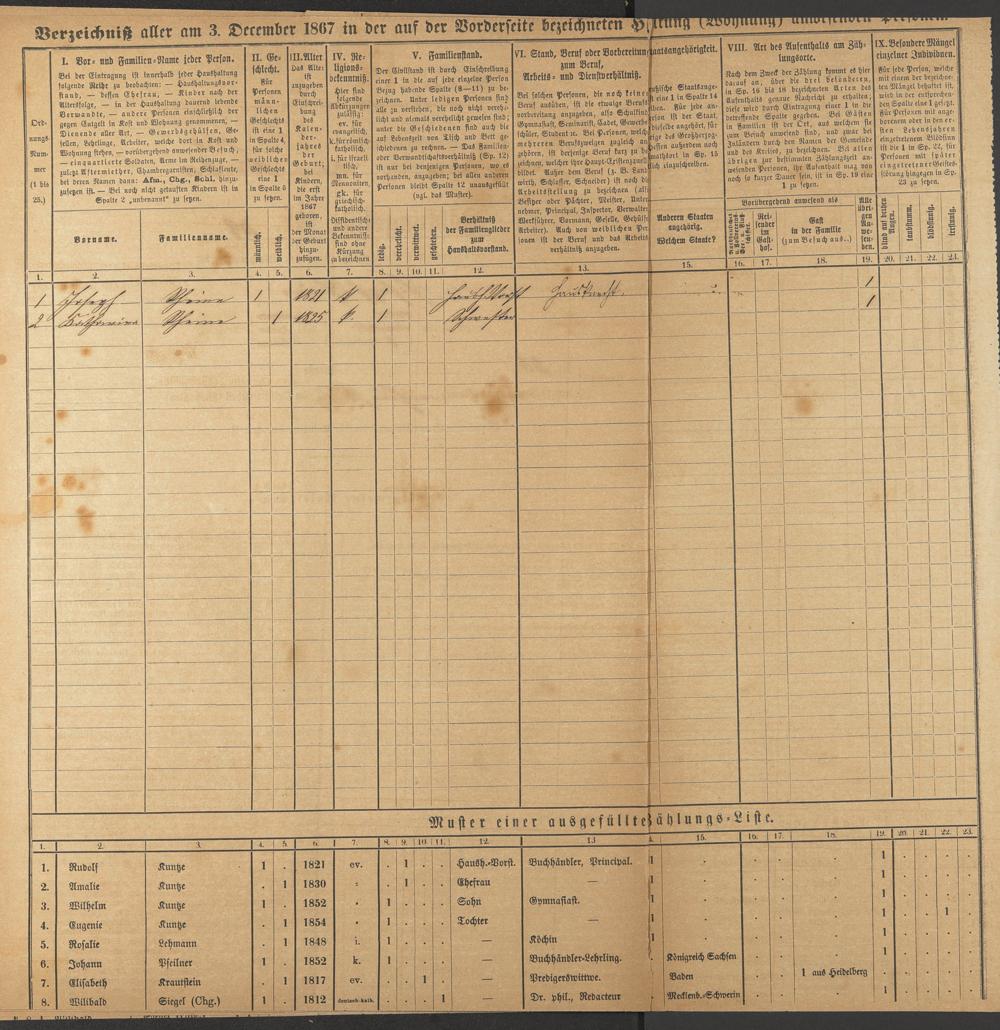 Verzeichniß aller am 3. December 1867 in der auf der Vorderseite bezeichneten
I. Vor- und Familien-Name jeder Person.
Bei der Eintragung ist innerhalb jeder Haushaltung
folgende Reihe zu beobachten: — Haushaltungsvor-
stand, — dessen Ehefrau, — Kinder nach der
Altersfolge, — in der Haushaltung dauernd lebende
Verwandte, — andere Personen einschließlich der
gegen Entgelt in Kost und Wohnung genommenen, —
Dienende aller Art, — Gewerbsgehülfen, Ge-
sellen, Lehrlinge, Arbeiter, welche dort in Kost und
Wohnung stehen, — vorübergehend anwesender Besuch;
— einquartierte Soldaten, Arme im Reihenzuge, —
zuletzt Aftermiether, Chambregarnisten, Schlafleute,
bei deren Namen dann: Afm., Chg., Schl. hinzu-
zusetzen ist. — Bei noch nicht getauften Kindern ist in
Spalte 2 „unbenannt" zu setzen.
Ord-
nungs-
Num-
mer
(1 bis
25.)
Vorname.
Familienname.
II. Ge-
schlecht.
Für
Personen
männ-
lichen
Geschlechts
ist eine 1
in Spalte 4,
für solche
weiblichen
Geschlechts
eine 1
in Spalte 5
zu setzen.
männlich.
weiblich.
III. Alter
Das Alter
ist
anzugeben
durch
Einschrei-
bung
des
Kalen-
der-
jahres
der
Geburt;
bei
Kindern,
die erst
im Jahre
1867
geboren,
ist
der Monat
der Geburt
hinzu-
zufügen.
IV. Re-
ligions-
bekenntniß.
Hier sind
folgende
Abkürzungen
zulässig:
ev. für
evangelisch,
k. für römisch-
katholisch,
i. für israeli-
tisch,
mn. für
Mennoniten,
gk. für
griechisch-
katholisch.
Dissidentisch-
und andere
Bekenntnisse
sind ohne
Kürzung
zu bezeichnen
V. Familienstand.
Der Civilstand ist durch Einschreibung
einer 1 in die auf jede einzelne Person
Bezug habende Spalte (8—11) zu be-
zeichnen. Unter ledigen Personen sind
alle zu verstehen, die noch nicht verehe-
licht und niemals verehelicht gewesen sind;
unter die Geschiedenen sind auch die
auf Lebenszeit von Tisch und Bett ge-
schiedenen zu rechnen. — Das Familien-
oder Verwandtschaftsverhältniß (Sp. 12)
ist nur bei denjenigen Personen, wo es
vorhanden, anzugeben; bei allen anderen
Personen bleibt Spalte 12 unausgefüllt
(vgl. das Muster).
ledig.
verehelicht.
verwittwet.
geschieden.
Verhältniß
der Familienglieder
zum
Haushaltsvorstand.
VI. Stand, Beruf oder Vorbereitung
zum Beruf,
Arbeits- und Dienstverhältniß.
Bei solchen Personen, die noch keinen
Beruf ausüben, ist die etwaige Berufs-
vorbereitung anzugeben, also
schüler, Student
mehreren Berufszweigen zugleich an-
gehören, ist derjenige Beruf kurz zu be-
zeichnen, welcher ihre Haupt-Existenzquelle
bildet. Außer dem Beruf (z. B. Land-
wirth, Schlosser, Schneider) ist noch die
Arbeitsstellung zu bezeichnen (also
Besitzer oder Pächter, Meister, Unter-
nehmer, Principal, Inspector, Verwalter,
Werkführer, Vormann, Geselle, Gehülfe,
Arbeiter). Auch von weiblichen Per-
sonen ist der Beruf und das Arbeits-
verhältniß anzugeben.
taatsangehörigkeit.
eine 1 in Spalte 14
ist der Staat,
mathsort in Sp. 15
einzuschreiben.
Anderen Staaten
angehörig.
Welchem Staate?
VIII. Art des Aufenthalts am Zäh-
lungsorte.
Nach dem Zweck der Zählung kommt es hier
darauf an, über die drei besonderen,
in Sp. 16 bis 18 bezeichneten Arten des
Aufenthalts genaue Nachricht zu erhalten;
diese wird durch Eintragung einer 1 in die
betreffende Spalte gegeben. Bei Gästen
in Familien ist der Ort, aus welchem sie
zum Besuch anwesend sind, und zwar bei
Inländern durch den Namen der Gemeinde
und des Kreises, zu bezeichnen. Bei allen
übrigen zur bestimmten Zählungszeit an-
wesenden Personen, ihr Aufenthalt mag ein
noch so kurzer Dauer sein, ist in Sp. 19 eine
1 zu setzen.
Vorübergehend anwesend als
Rei-
sender
im Gast-
hof.
Gast
in der Familie
(zum Besuch aus..)
Alle
übri-
gen An-
wesen-
den.
IX. Besondere Mängel
einzelner Individuen.
Für jede Person, welche
mit einem der bezeichne-
ten Mängel behaftet ist,
wird in der entsprechen-
den Spalte eine 1 gesetzt.
Für Personen mit ange-
borenem oder in den er-
sten Lebensjahren
eingetretenem Blödsinn
ist die 1 in Sp. 22, für
Personen mit später
eingetretener Geistes-
störung hingegen in Sp.
23 zu setzen.
blind auf beiden Augen.
taubstumm.
blödsinnig.
irrsinnig.
1. 2. 3. 4. 5. 6. 7. 8. 9. 10. 11. 12. 13. 15. 16. 17. 18. 19. 20. 21. 22. 23.
1 Joseph Rheine 1 1821 k 1 Haush.Vorst Hausknecht. 1
2 Katharina Rheine 1 1825 k. 1 Schwester 1
Muster einer ausgefüllte Zählungs-Liste.
1. 2. 3. 4. 5. 6. 7. 8. 9. 10. 11. 12. 13. 15. 16. 17. 18. 19. 20. 21. 22. 23.
1. Rudolf Kuntze 1 . 1821 ev. . 1 . . Haush.-Vorst. Buchhändler, Principal. 1 . . . . 1 . . . .
2. Amalie Kuntze . 1 1830 = . 1 . . Ehefrau — 1 . . . . 1 . . . .
3. Wilhelm Kuntze 1 . 1852 . 1 . . . Sohn Gymnasiast. 1 . . . . 1 . . . .
4. Eugenie Kuntze . 1 1854 . 1 . . . Tochter — 1 . . . . 1 . . 1 .
5. Rosalie Lehmann . 1 1848 i. 1 . . . — Köchin 1 . . . . 1 . . . .
6. Johann Pfeilner 1 . 1852 k. 1 . . . — Buchhändler-Lehrling. Königreich Sachsen . . . 1 . . . .
7. Elisabeth Krautstein . 1 1817 ev. . . 1 . — Predigerswittwe. Baden . . 1 aus Heidelberg . . . . .
8. Wilibald Siegel (Chg.) 1 . 1812 deutsch-kath. . . . 1 — Dr. phil., Redacteur Mecklenb.-Schwerin . . . 1 . . . .